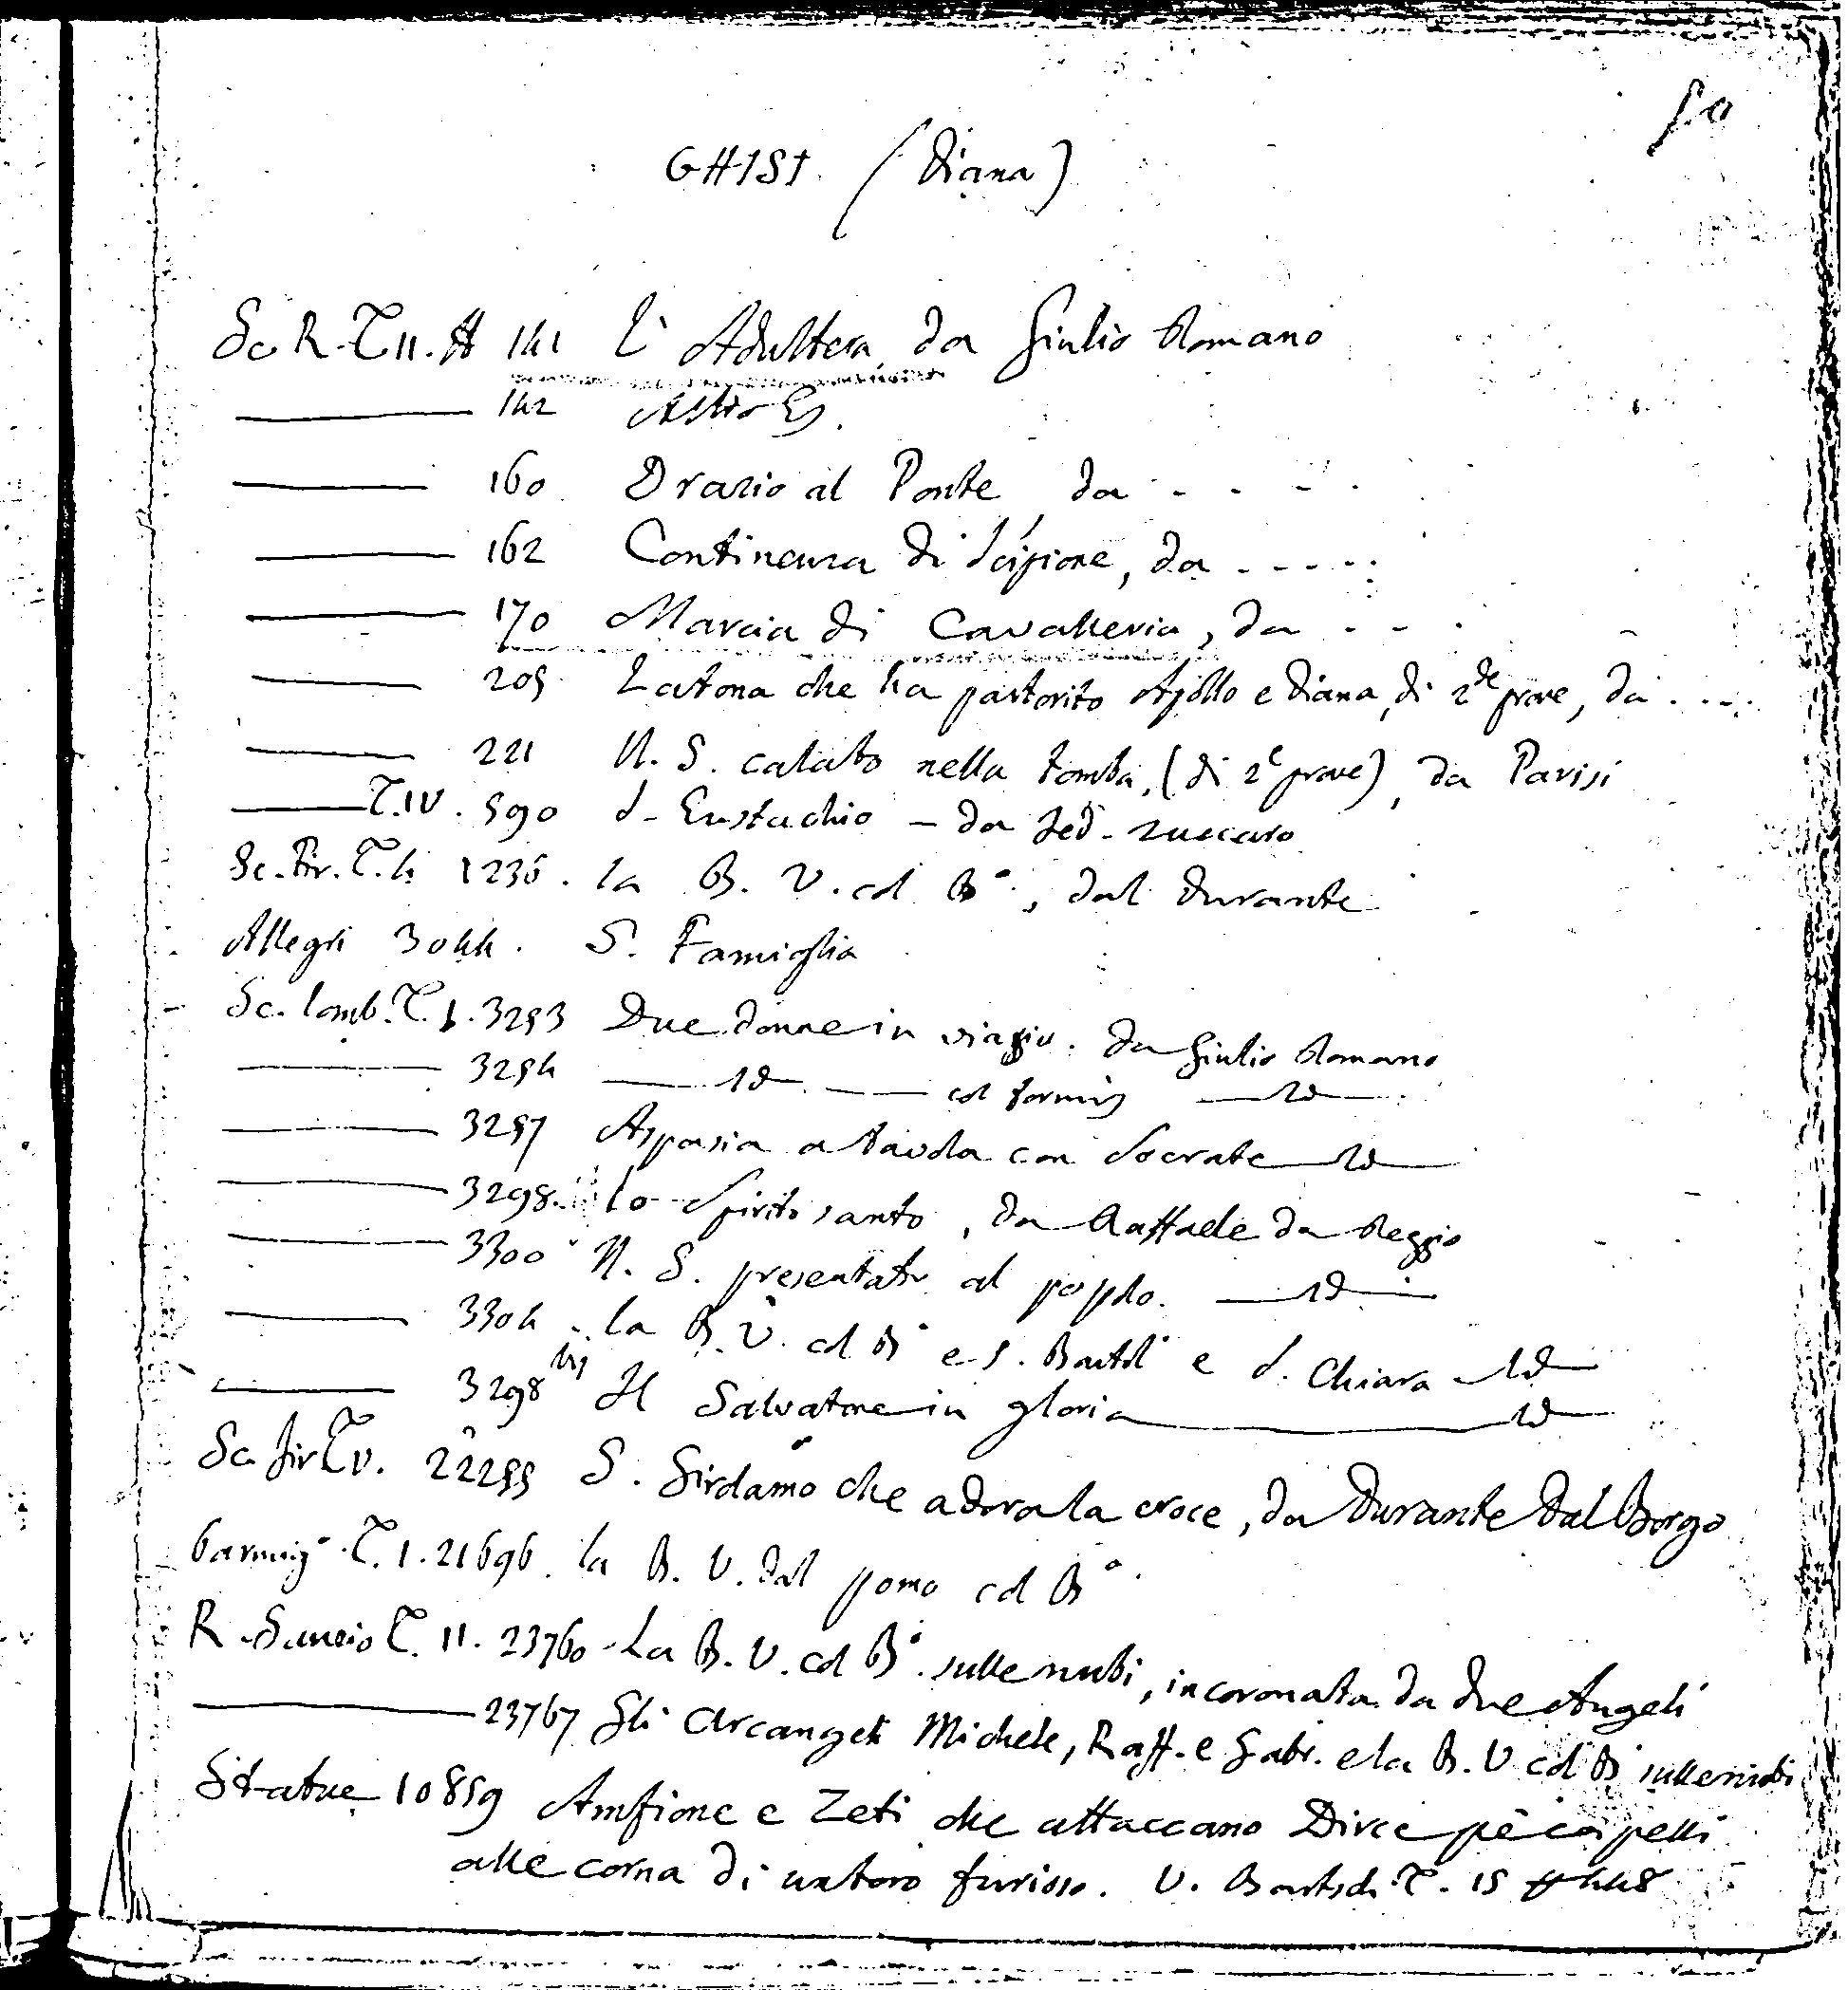 50
GHISI (Diana)
Sc. R. T. II. # 141 L'Adultera da Giulio Romano
142 Altro Es.
160 Orazio al Ponte, da - - - -
162 Continenza di Scipione, da - - - - -
170 Marcia di Cavalleria, da - - -
205 Latona che ha partorito Apollo e Diana, di 2de prove, da - - - -
221 N. S. calato nella tomba, (di 2e prove), da Parisi
T. IV. 590 S. Eustachio - da Fed. Zuccaro
Sc. Fir. T. 4 1236. la B. V. col Bo., dal Durante
Allegri 3044. S. Famiglia
Sc. Lomb. T. 1. 3293 Due donne in viagio. da Giulio Romano
3294 — id — col — id —
3297 Aspasia a tavola con Socrate — id —
3298. lo Spirito santo, da Raffaele da Reggio
3300 N. S. presentato al popolo. — id —
3304 la B. V. col Bo e S. Bartol e S. Chiara — id —
3298 bis Il Salvatore in gloria — id —
Sc. fir T. V. 22255 S. Girolamo che adora la croce, da Durante dal Borgo
Parmigo. T. 1. 21696. la B. V. dal pomo col Bo.
R. Sanzio T. II. 23760 La B. V. col Bo. sulle nubi, incoronata da due Angeli
23767 Gli Arcangeli Michele, Raff. e Gabr. e la B. V col Bo sulle nubi
Statue 10859 Amfione e Zeti che attaccano Dirce pe capelli
alle corna di un toro furioso. V. Bartsch T. 15 # 448